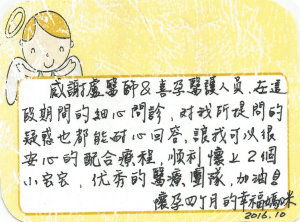 感謝盧醫師&喜孕醫護人員.在這
段期間的細心問診,對我所提問的
疑惑也都能耐心回答,讓我可以很
安心的配合療程,順利懷上2個
小宝宝,優秀的醫療團隊,加油!
懷孕四个月的幸福媽咪
2016.10